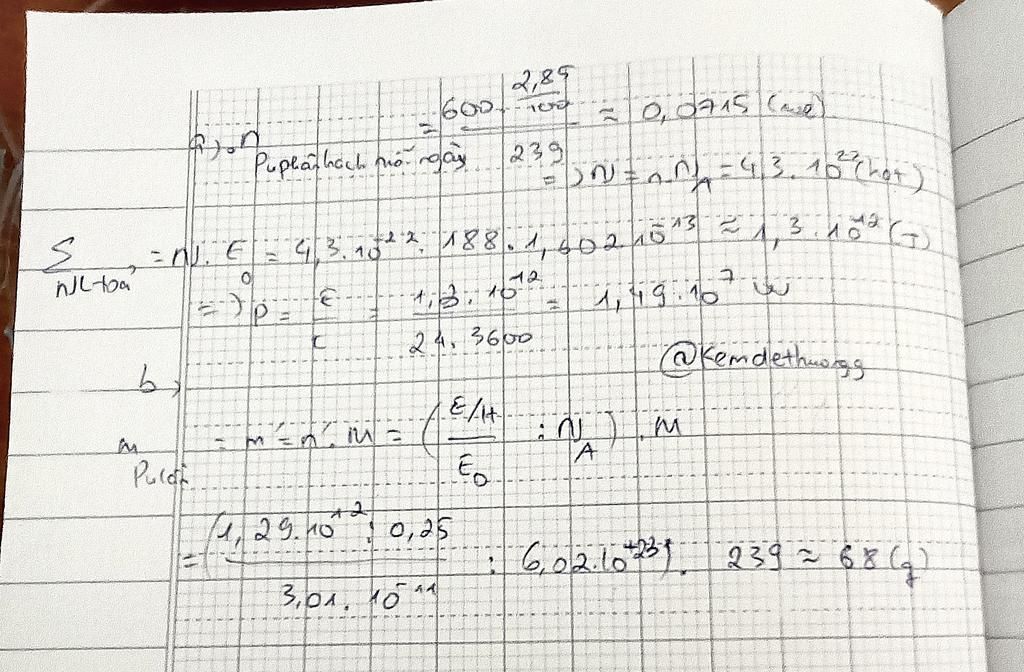 a) n Pu phân hạch mỗi ngày = 600 . 2,85/100 / 239 ≈ 0,0715 (mol)
=> N = n.N_A = 4,3.10^22 (hạt)
Σ nl toả = N. E_0 = 4,3.10^22. 188.1,602.10^-13 ≈ 1,3.10^12 (J)
=> P = E/t = 1,3.10^12 / 24.3600 = 1,49.10^7 W
@Kemdethuongg
b,
m Pu cần = m' = n'. M = (E/H / E_0 : N_A) . M
= (1,29.10^+2 : 0,25 / 3,01.10^-11 : 6,02.10^+23). 239 ≈ 68 (g)